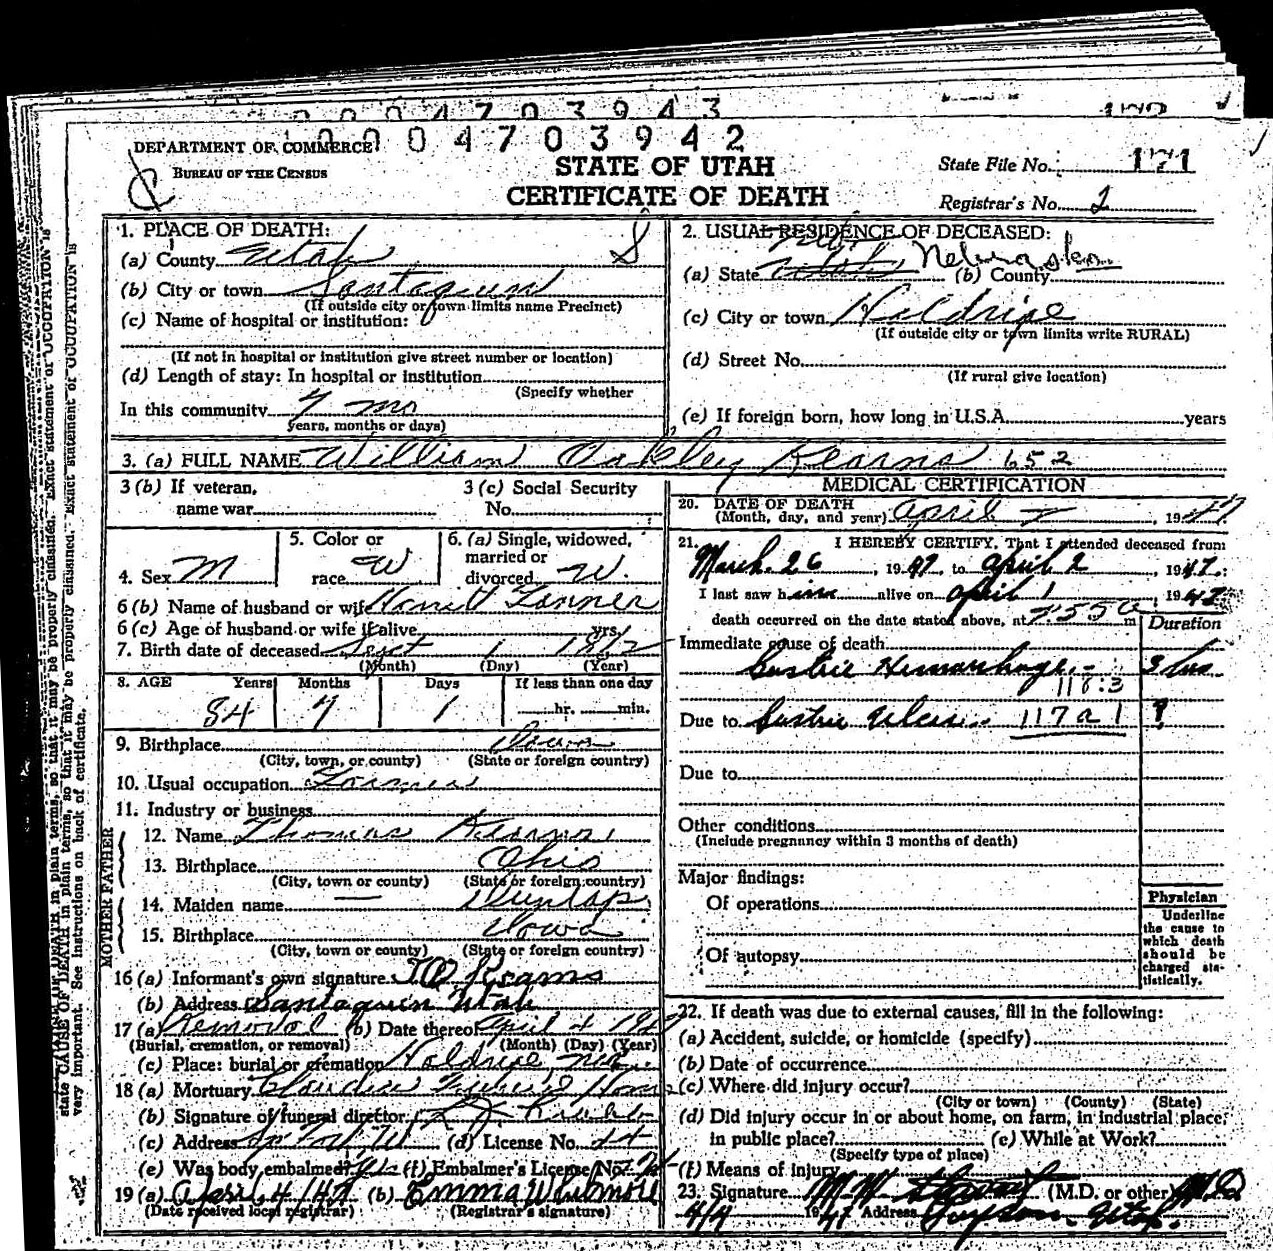 0004703943
0004703942
DEPARTMENT OF COMMERCE
BUREAU OF THE CENSUS
STATE OF UTAH
CERTIFICATE OF DEATH
State File No. 171
Registrar's No. 2
1. PLACE OF DEATH:
(a) County Utah
(b) City or town Santaquin
(If outside city or town limits name Precinct)
(c) Name of hospital or institution:
(If not in hospital or institution give street number or location)
(d) Length of stay: In hospital or institution
(Specify whether
In this community 7 mo
years, months or days)
2. USUAL RESIDENCE OF DECEASED:
(a) State Utah Nebraska (b) County
(c) City or town Holdrige
(If outside city or town limits write RURAL)
(d) Street No.
(If rural give location)
(e) If foreign born, how long in U.S.A. years
3. (a) FULL NAME William Oakley Kearns 652
3 (b) If veteran, name war
3 (c) Social Security No.
4. Sex M
5. Color or race W
6. (a) Single, widowed, married or divorced W.
6 (b) Name of husband or wife Tanner
6 (c) Age of husband or wife if alive yrs.
7. Birth date of deceased Sept 1 1862
(Month) (Day) (Year)
8. AGE Years Months Days If less than one day
84 7 1 hr. min.
9. Birthplace Iowa
(City, town, or county) (State or foreign country)
10. Usual occupation Farmer
11. Industry or business
FATHER
12. Name Thomas Kearns
13. Birthplace Ohio
(City, town or county) (State or foreign country)
MOTHER
14. Maiden name — Dunlap
15. Birthplace Iowa
(City, town or county) (State or foreign country)
16 (a) Informant's own signature Kearns
(b) Address Santaquin Utah
17 (a) Removal (b) Date thereof April 4 1947
(Burial, cremation, or removal) (Month) (Day) (Year)
(c) Place: burial or cremation Holdrige Neb.
18 (a) Mortuary Claudin Funeral Home
(b) Signature of funeral director
(c) Address (d) License No. 24
(e) Was body embalmed? Yes (f) Embalmer's License No.
19 (a) April 4 / 47 (b) Emma Whitmore
(Date received local registrar) (Registrar's signature)
MEDICAL CERTIFICATION
20. DATE OF DEATH
(Month, day, and year) April 2, 1947
21. I HEREBY CERTIFY, That I attended deceased from
March 26, 1947, to April 2, 1947.;
I last saw him alive on April 1, 1947
death occurred on the date stated above, at 7:55 a m
Duration
Immediate cause of death
Gastric Hemorrhage - 3 hrs
116:3
Due to Gastric Ulcer 117a1 ?
Due to
Other conditions
(Include pregnancy within 3 months of death)
Major findings:
Of operations
Of autopsy
Physician
Underline
the cause to
which death
should be
charged sta-
tistically.
22. If death was due to external causes, fill in the following:
(a) Accident, suicide, or homicide (specify)
(b) Date of occurrence
(c) Where did injury occur?
(City or town) (County) (State)
(d) Did injury occur in or about home, on farm, in industrial place,
in public place? (e) While at Work?
(Specify type of place)
(f) Means of injury
23. Signature M M Stewart (M.D. or other) M.D
4/4 1947 Address Payson, Utah.
state CAUSE OF DEATH in plain terms, so that it may be properly classified. Exact statement of OCCUPATION is
very important. See instructions on back of certificate.